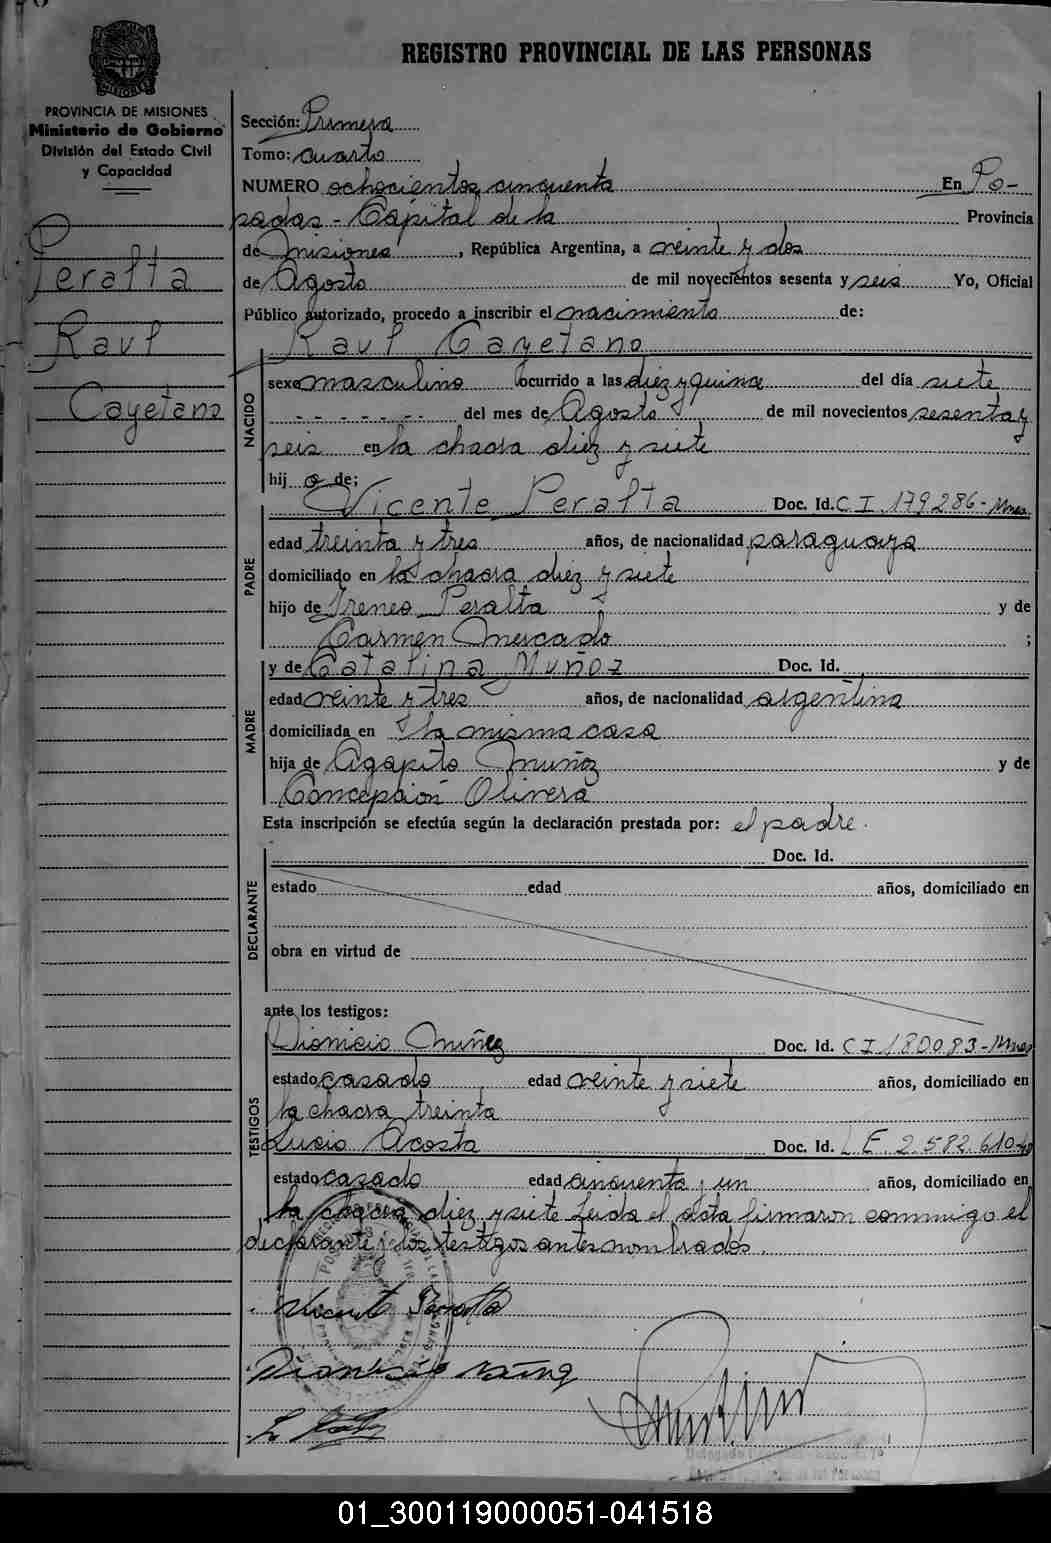 REGISTRO PROVINCIAL DE LAS PERSONAS
PROVINCIA DE MISIONES
Ministerio de Gobierno
División del Estado Civil
y Capacidad
Peralta
Raul
Cayetano
Sección: Primera
Tomo: cuarto
NUMERO ochocientos cincuenta En Po-
sadas - Capital de la Provincia
de Misiones, República Argentina, a veinte y dos
de Agosto de mil novecientos sesenta y seis Yo, Oficial
Público autorizado, procedo a inscribir el nacimiento de:
Raul Cayetano
NACIDO
sexo masculino ocurrido a las diez y quince del día siete
- - - - - - - del mes de Agosto de mil novecientos sesenta y
seis en la chacra diez y siete
hijo de;
PADRE
Vicente Peralta Doc. Id. C I 179286 - Mnes
edad treinta y tres años, de nacionalidad paraguaya
domiciliado en la chacra diez y siete
hijo de Ireneo Peralta y de
Carmen Mercado ;
MADRE
y de Catalina Muñoz Doc. Id.
edad veinte y tres años, de nacionalidad argentina
domiciliada en la misma casa
hija de Agapito Muñoz y de
Concepción Olivera
Esta inscripción se efectúa según la declaración prestada por: el padre.
DECLARANTE
Doc. Id.
estado edad años, domiciliado en
obra en virtud de
ante los testigos:
TESTIGOS
Dionicio Muñoz Doc. Id. C I 180083 - Mnes
estado casado edad veinte y siete años, domiciliado en
la chacra treinta
Lucio Acosta Doc. Id. L E 2.582.610
estado casado edad cincuenta y un años, domiciliado en
la chacra diez y siete Leida el acta firmaron conmigo el
declarante y los testigos antes nombrados.
Vicente Peralta
Dionicio
01_300119000051-041518